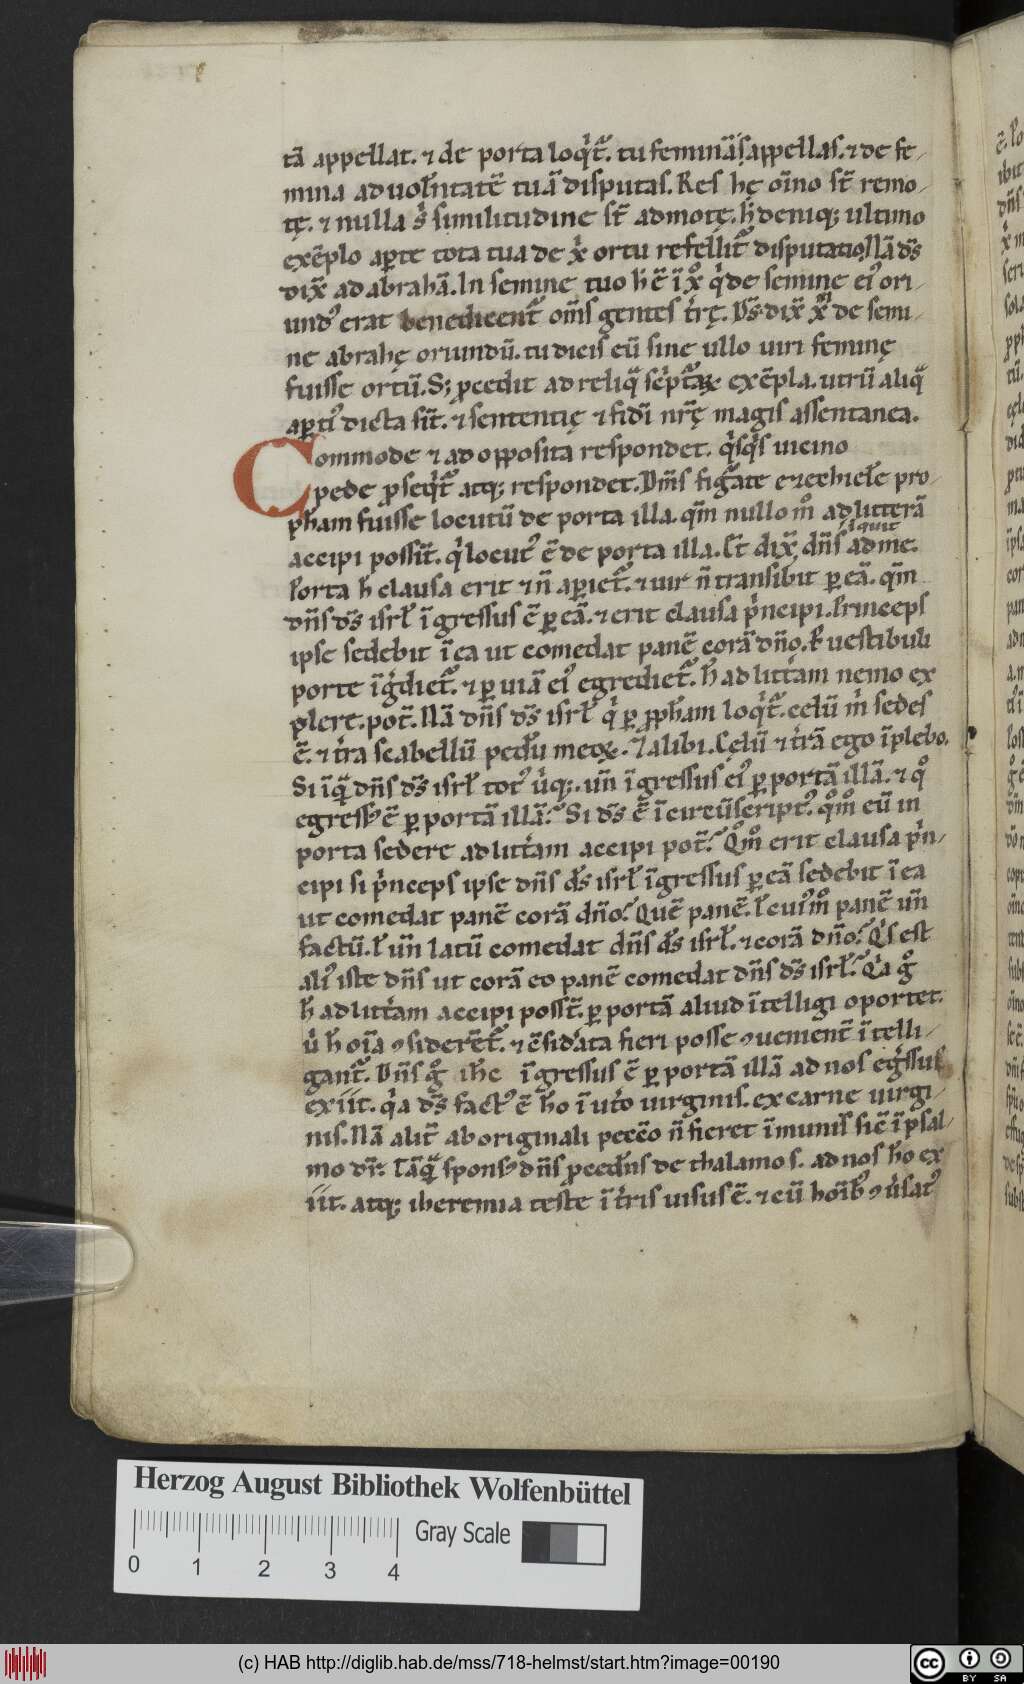 tā appellat. ⁊ de porta loq̇̄t᷑. tu feminā appellas. ⁊ de fe-
mina ad uolūtatē tuā disputas. Res hę oīno st̄ remo-
tę. ⁊ nulla similitudine st̄ admotę. h̄ deniq; ultimo
exēplo aꝑte tota tua de xp̄i ortu refellit᷑ disputatio. Nā ds̄
dix̄ ad abrahā. In semine tuo h̄ ē ī xp̄o q̇ de semine ei᷒ ori-
und᷒ erat benedicent᷑ om̄s gentes tr̄ę. Ds̄ dix̄ xp̄m de semi-
ne abrahę oriundū. tu dicis eū sine ullo uiri semine
fuisse ortū. S; ꝓcedit ad reliq̄ sc̄ptaꝝ exēpla. utrū aliq̄
aꝑti᷒ dicta sit̄. ⁊ sententię ⁊ fidī nr̄ę magis assentanea.
Commode ⁊ ad opposita respondet. q̇sq̇s uicino
pede ꝓseq̇t᷑ atq; respondet. Dn̄s figāte ezechiele pro-
ph̄am fuisse locutū de porta illa. qm̄ nullo m̊ ad litterā
accipi possit̄. q̇ locut᷒ ē de porta illa. Et dix̄ dn̄s inquit ad me.
Porta h̄ clausa erit ⁊ n̄ aꝑiet᷑. ⁊ uir n̄ transibit ꝑ eā. qm̄
dn̄s ds̄ isrł īgressus ē ꝑ eā. ⁊ erit clausa ṗncipi. Princeps
ipse sedebit ī ea ut comedat panē corā dn̄o. P uestibuli
porte īg̊diet᷑. ⁊ ꝑ uiā ei᷒ egrediet᷑. h̄ ad litt̄am nemo ex
plere. pot̄. Nā dn̄s ds̄ isrł q̇ ꝑ ꝓph̄am loq̇t᷑. celū ṁ sedes
ē. ⁊ tr̄a scabellū pedū meoꝝ. ⁊ alibi. Celū ⁊ tr̄ā ego īplebo.
Si īq̄ dn̄s ds̄ isrł tot᷒ u̇q;. un̄ īgressus ei᷒ ꝑ portā illā. ⁊ q̊
egress᷒ ē ꝑ portā illā? Si ds̄ ē īcircūscript᷒. q̊m̊ eū in
porta sedere ad litt̄am accipi pot̄? Q̊m̊ erit clausa ṗn-
cipi si ṗnceps ipse dn̄s ds̄ isrł īgressus ꝑ eā sedebit ī ea
ut comedat panē corā dn̄o? Quē panē. ł cui᷒m̊ panē un̄
factū. ł un̄ latū comedat dn̄s ds̄ isrł. ⁊ corā dn̄o? Q̇s est
ali᷒ iste dn̄s ut corā eo panē comedat dn̄s ds̄ isrł? Q̇a g̊
h̄ ad litt̄am accipi posst̄. ꝑ portā aliud ītelligi oportet.
u̇ h̄ oīa ꝯsiderēt᷑. ⁊ ꝯsidāta fieri posse ꝯuenient̄ ītelli-
gant᷑. Dn̄s g̊ ih̄c īgressus ē ꝑ portā illā ad nos eg̊ssus
exiit. q̇a ds̄ fact᷒ ē h̊o ī ut̊o uirginis. ex carne uirgi-
nis. Nā alit̄ ab originali pecc̄o n̄ fieret īmunis sic̄ ī psal-
mo dr̄. Tāq̄ spons᷒ dn̄s ꝓced̄ns de thalamo s. ad nos h̊o ex
iit. atq; iheremia teste ī tr̄is uisus ē. ⁊ eū hoīb᷒ ꝯu̇sat᷒
Herzog August Bibliothek Wolfenbüttel
0 1 2 3 4 Gray Scale
(c) HAB http://diglib.hab.de/mss/718-helmst/start.htm?image=00190
cc BY SA